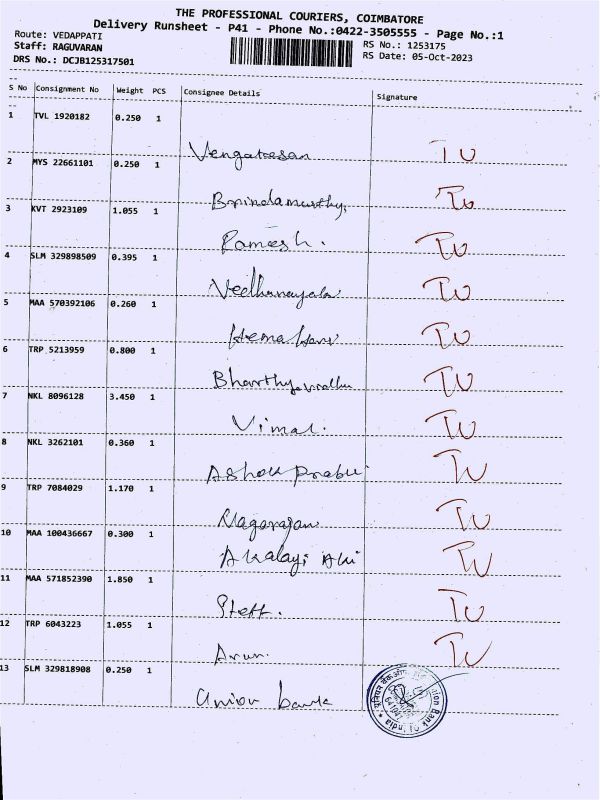 THE PROFESSIONAL COURIERS, COIMBATORE
Delivery Runsheet - P41 - Phone No.:0422-3505555 - Page No.:1
Route: VEDAPPATI
Staff: RAGUVARAN
DRS No.: DCJB125317501
RS No.: 1253175
RS Date: 05-Oct-2023
S No Consignment No Weight PCS Consignee Details Signature
1 TVL 1920182 0.250 1
Vengatesan TU
2 MYS 22661101 0.250 1
TU
3 KVT 2923109 1.055 1
Ramesh. TU
4 SLM 329898509 0.395 1
TU
5 MAA 570392106 0.260 1
TU
6 TRP 5213959 0.800 1
TU
7 NKL 8096128 3.450 1
Vimal. TU
8 NKL 3262101 0.360 1
Ashok prabu TU
9 TRP 7084029 1.170 1
Nagarajan TU
10 MAA 100436667 0.300 1
TU
11 MAA 571852390 1.850 1
TU
12 TRP 6043223 1.055 1
Arun. TU
13 SLM 329818908 0.250 1
Union bank